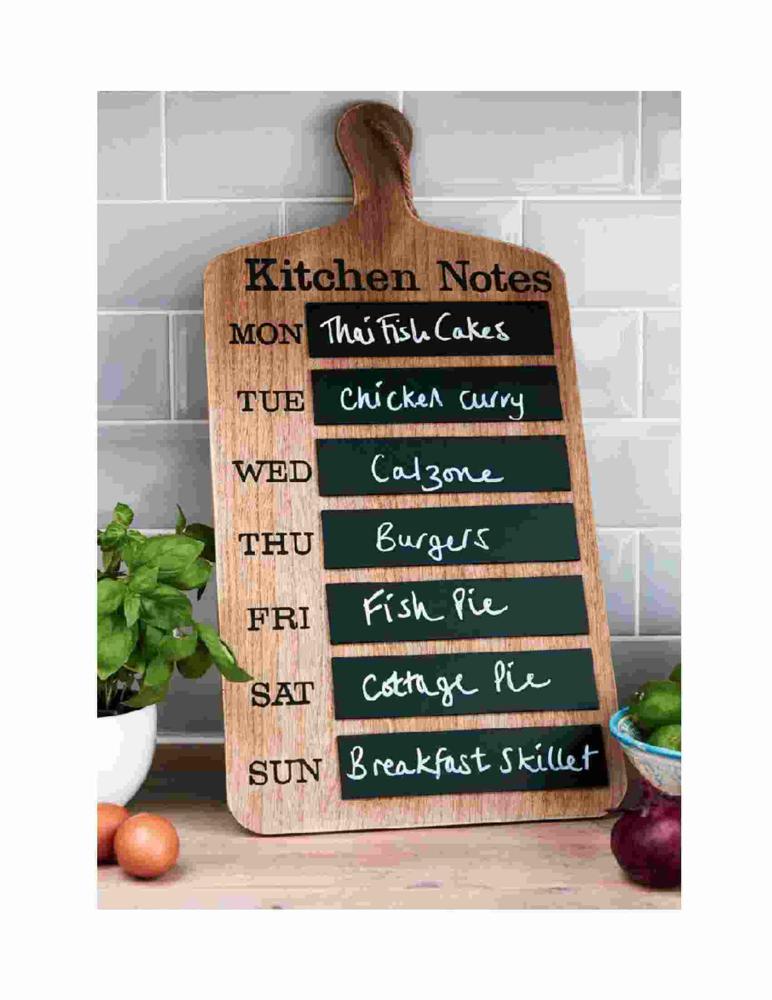 Kitchen Notes
MON Thai Fish Cakes
TUE Chicken curry
WED Calzone
THU Burgers
FRI Fish Pie
SAT Cottage Pie
SUN Breakfast Skillet